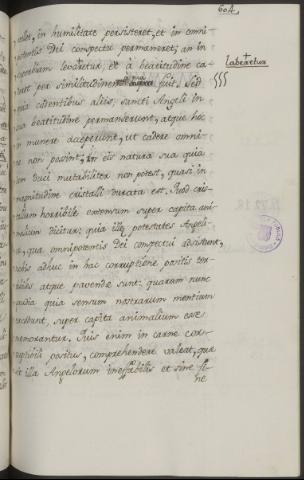 604
valles, in humilitate persisteret, et in omni-
potentis Dei conspectu permaneret; an in
superbiam levaretur et à beatitudine ca-
deret per similitudinem aquæ fuit. Sed
quia cadentibus aliis, sancti Angeli in
sua beatitudine permanserunt, atque hoc
in munere acceperunt, ut cadere omni-
no non possint, in eis natura sua quia
jam duci mutabiliter non potest, quasi in
magnitudine cristalli durata est. Quod cris-
tallum horribile extentum super capita ani-
malium dicitur; quia illæ potestates Angeli-
cæ, qua omnipotentis Dei conspectui adsistunt,
nobis adhuc in hac corruptione positis ter-
ribiles atque pavendæ sunt: quarum nunc
gaudia quia sensum nostrarum mentium
excedunt, super capita animalium esse
memorantur. Quis enim in carne cor-
ruptionis positus, comprehendere valeat, quæ
sit illa Angelorum ineffabilis et sine fi-
ne
laberetur